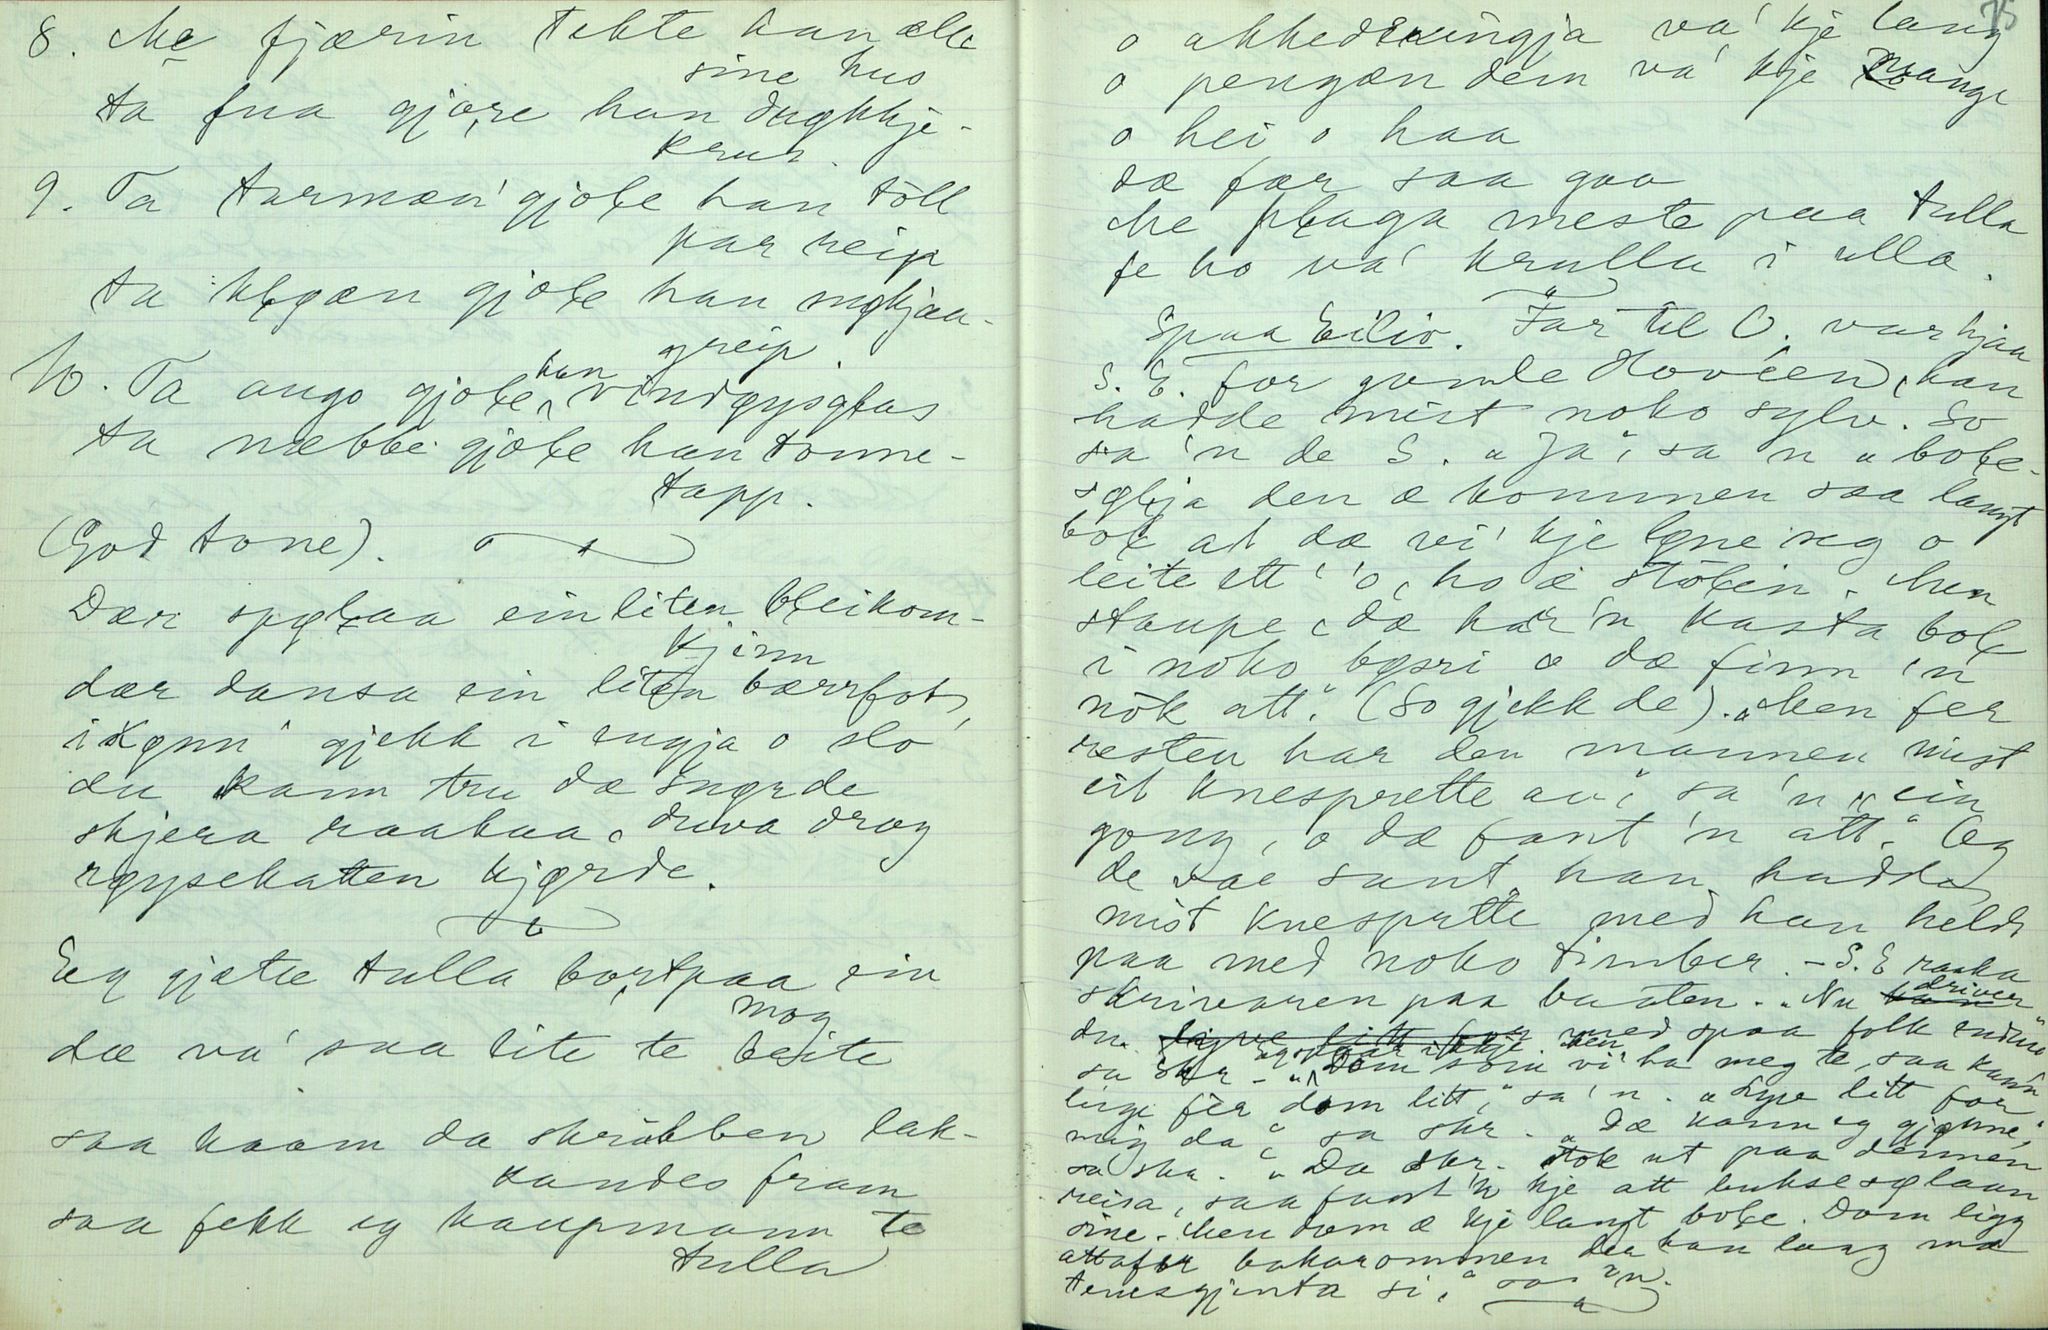 8. Me fjærin tekte han alle
sine hus
ta fua gjore han dugkkje-
krus.
9. Ta tarmæn' gjoƚe han tôll
par reip
ta kƚoæn gjoƚe han møkjaa-
greip.
10. Ta augo gjoƚe han vindøysgƚas
ta næbbe gjoƚe han tonne-
tapp.
(God tone).
Dær spøƚaa ein liten bƚeikom-
kjinn
dær dansa ein liten bærrfot,
ikønn' gjekk i engja o slo
du kann tru dæ snørde
skjera raakaa, duva drog
røysekatten kjørde.
Eg gjætte tulla bortpaa ein
mog
dæ va' saa lite te beite
saa kaam da skrubben lak-
kandes fram
saa fekk eg kaupmann te
tulla
75
o akkedeningja va' kje lang
o pengæn dem va' kje mange
o hei o haa
dæ fær saa gaa
Me pƚaga meste paa tulla
fe ho va' krulla i ulla.
Spaa Eiliv. Far til O. var hjaa
S. E. for gamle Hovéen, han
hadde mist noko sylv. So
sa 'n de S. „Ja", sa 'n „boƚe-
søƚja den æ kommen saa langt
boƚ at dæ vi' kje løne seg o
leite ett' 'o, ho æ stôƚin. Men
staupe, dæ har 'n kasta boƚ
i noko bøsri o dæ finn 'n
nôk att." (So gjekk de). „Men fer
resten har den mannen mist
eit knesprette au", sa 'n, „ein
gong, o dæ fant 'n att." Og
de var sant, han hadde
mist knesprette med han heldt
paa med noko timber. - S. E raaka
skrivaren paa baaten. „Nu driver
du med spaa folk endnu"
sa skr - „ Dem som vi' ha meg te, saa kann
lige fer dom litt," sa 'n. „Lyve litt for
mig da", sa skr. „Dæ kann eg gjønne,"
sa ska. „Da skr. tok ut paa dennen
reisa, saa fant 'n kje att buksesælaan
sine. Men dem æ kje langt boƚe. Dom ligg
attafer bakarommen der han laag mæ
tenesgjenta si," sa 'n.